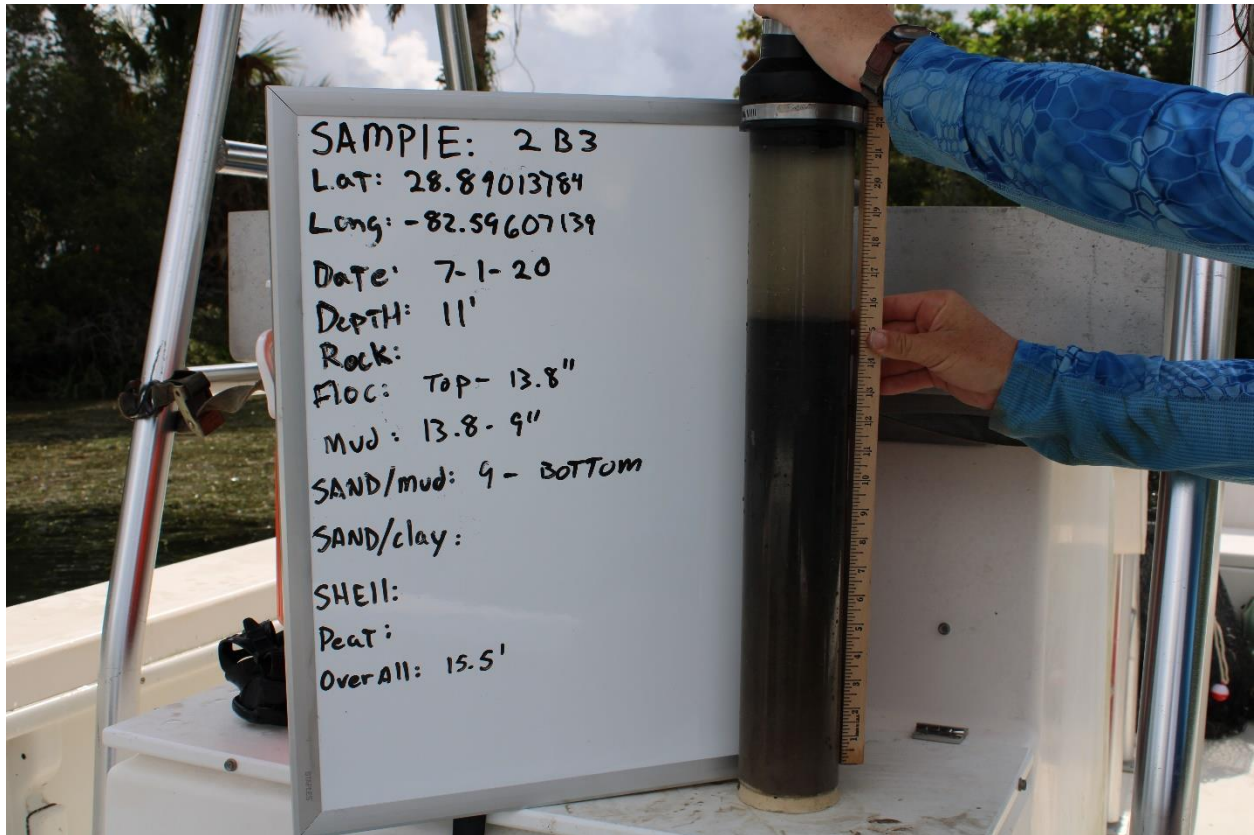 SAMPlE: 2 B3
Lat: 28.89013784
Long: -82.59607139
Date: 7-1-20
DepTH: 11'
Rock:
Floc: Top- 13.8"
Mud: 13.8- 9"
SAND/mud: 9 - BOTTOM
SAND/clay:
SHEll:
PeaT:
OverAll: 15.5'